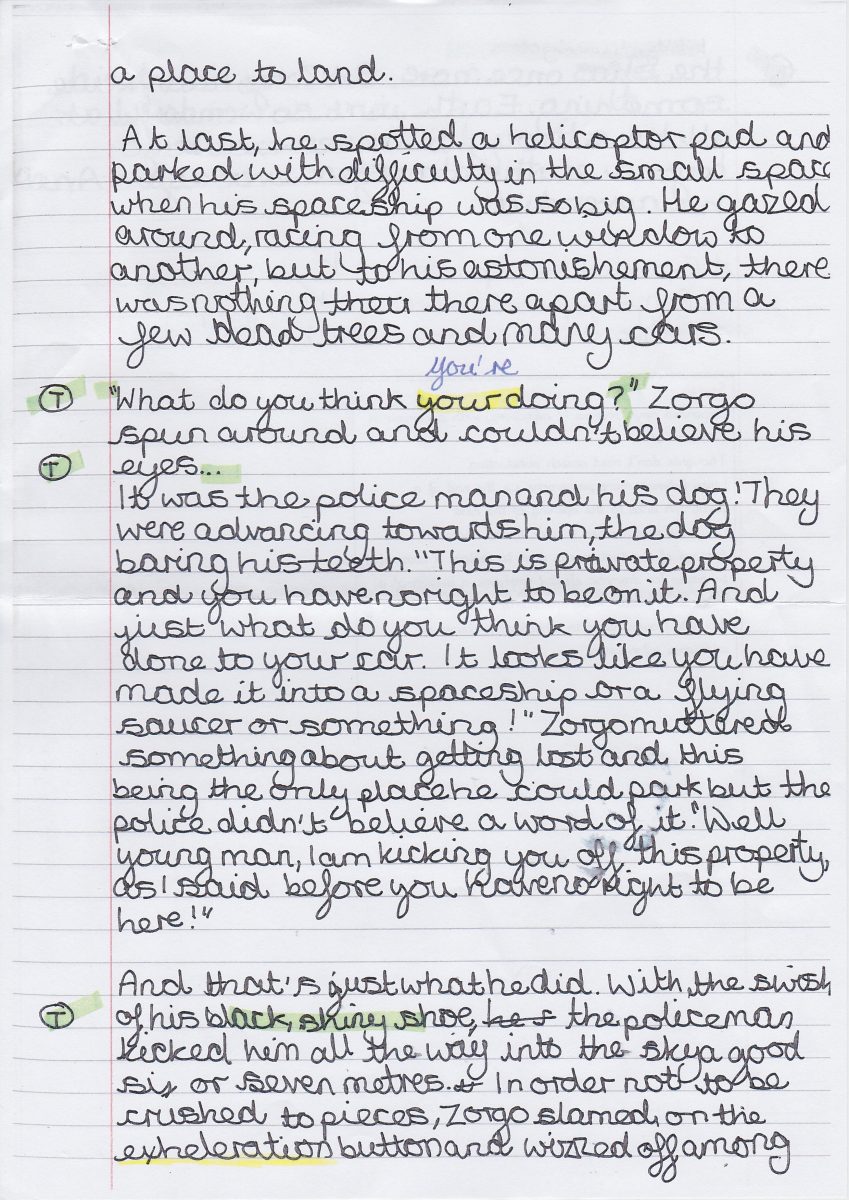 a place to land.
At last, he spotted a helicoptor pad and
parked with difficulty in the small spac
when his spaceship was so big. He gazed
around, racing from one window to
another, but to his astonishement, there
was nothing there apart from a
few dead trees and many cars.
you're
T "What do you think your doing?" Zorgo
spun around and couldn't believe his
T eyes...
It was the police man and his dog! They
were advancing towards him, the dog
baring his teeth. "This is private property
and you have no right to be on it. And
just what do you think you have
done to your car. It looks like you have
made it into a spaceship or a flying
saucer or something!" Zorgo muttered
something about getting lost and this
being the only place he could park but the
police didn't believe a word of it. "Well
young man, I am kicking you off this property,
as I said before you have no right to be
here!"
And that's just what he did. With, the swish
T of his black, shiny shoe, the policeman
kicked him all the way into the sky a good
six or seven metres. In order not to be
crushed to pieces, Zorgo slamed on the
exheleration button and wizzed off among